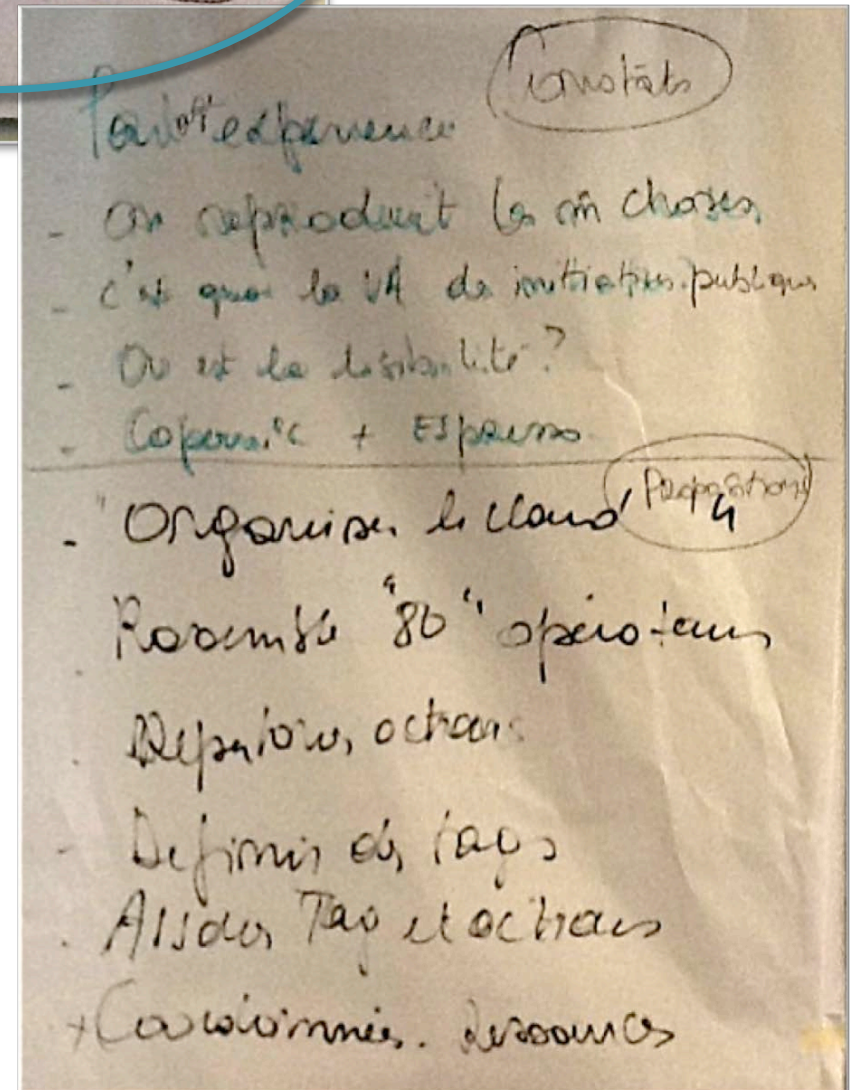 Constats
Part expérience
- On reproduit les m̂ choses
- C'est quoi la VA de initiatives publiques
- Où est la lisibilité ?
- Copernic + Espresso
Propositions
- "Organiser le cloud"
Rassemble "80" opérateurs
Répertorier, actions
- Définir des tags
. Associer Tag et actions
+ Coordonnées. Ressources